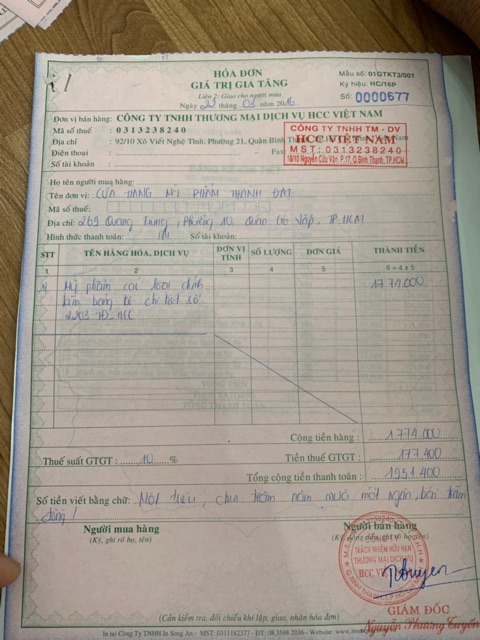 HÓA ĐƠN
GIÁ TRỊ GIA TĂNG
Liên 2: Giao cho người mua
Ngày 22 tháng 03 năm 2016
Mẫu số: 01GTKT3/001
Ký hiệu: HC/16P
Số: 0000677
Đơn vị bán hàng: CÔNG TY TNHH THƯƠNG MẠI DỊCH VỤ HCC VIỆT NAM
Mã số thuế : 0313238240
Địa chỉ : 92/10 Xô Viết Nghệ Tĩnh, Phường 21, Quận Bình
Điện thoại : Fax
Số tài khoản :
CÔNG TY TNHH TM - DV
HCC VIỆT NAM
MST: 0313238240
18/10 Nguyễn Cửu Vân, P.17, Q.Bình Thạnh, TP.HCM
Họ tên người mua hàng:
Tên đơn vị: CỬA HÀNG MỸ PHẨM THANH ĐẠT
Mã số thuế:
Địa chỉ: 269 Quang Trung, Phường 10, Quận Gò Vấp, TP.HCM
Hình thức thanh toán: TM Số tài khoản:
STT TÊN HÀNG HÓA, DỊCH VỤ ĐƠN VỊ TÍNH SỐ LƯỢNG ĐƠN GIÁ THÀNH TIỀN
1 2 3 4 5 6 = 4 x 5
Mỹ phẩm các loại đính 1.774.000
kèm bảng kê chi tiết số
2203/HĐ-HCC
Cộng tiền hàng : 1.774.000
Thuế suất GTGT : 10 % Tiền thuế GTGT : 177.400
Tổng cộng tiền thanh toán : 1.951.400
Số tiền viết bằng chữ: Một triệu, chín trăm năm mươi một ngàn, bốn trăm
đồng /
Người mua hàng Người bán hàng
(Ký, ghi rõ họ, tên)
TRÁCH NHIỆM HỮU HẠN
THƯƠNG MẠI DỊCH VỤ
HCC VIỆT
GIÁM ĐỐC
Nguyễn Phương Tuyền
(Cần kiểm tra, đối chiếu khi lập, giao, nhận hóa đơn)
In tại Công Ty TNHH In Song An - MST: 0311182377 - ĐT: 08.3588 2036 - Website: